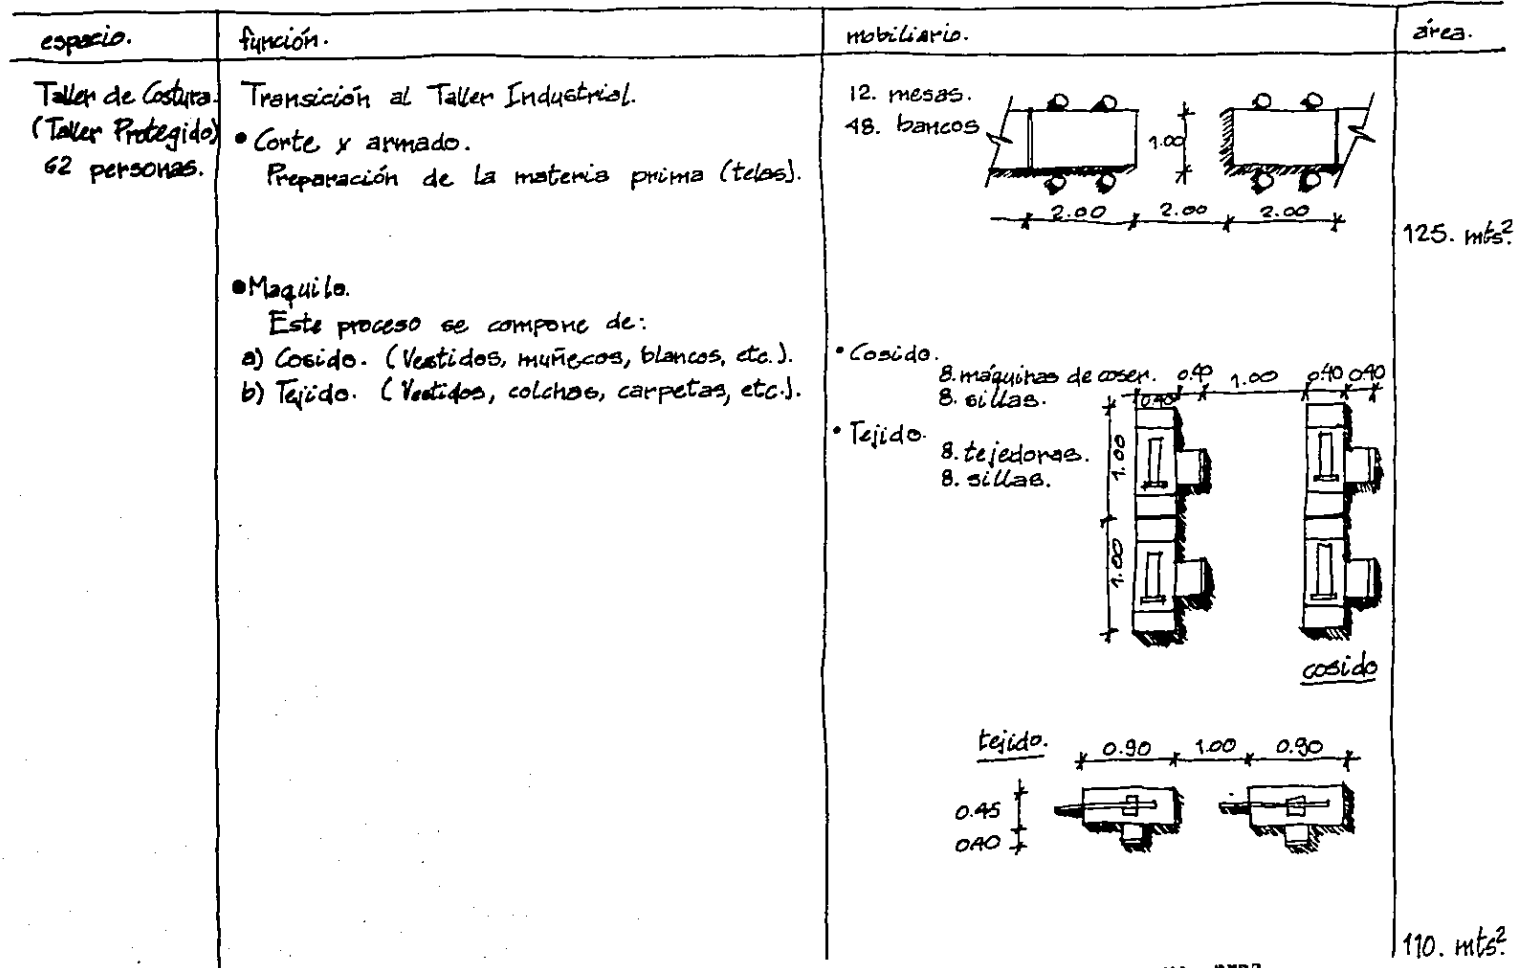 espacio.
función.
mobiliario.
área.
Taller de Costura.
(Taller Protegido)
62 personas.
Transición al Taller Industrial.
• Corte y armado.
Preparación de la materia prima (telas).
12. mesas.
48. bancos
1.00
2.00 2.00 2.00
125. mts².
• Maquila.
Este proceso se compone de:
a) Cosido. (Vestidos, muñecos, blancos, etc.).
b) Tejido. (Vestidos, colchas, carpetas, etc.).
• Cosido.
8. máquinas de coser.
8. sillas.
0.40 1.00 0.40 0.40
0.40
• Tejido.
8. tejedoras.
8. sillas.
1.00
1.00
cosido
tejido.
0.90 1.00 0.90
0.45
0.40
110. mts².